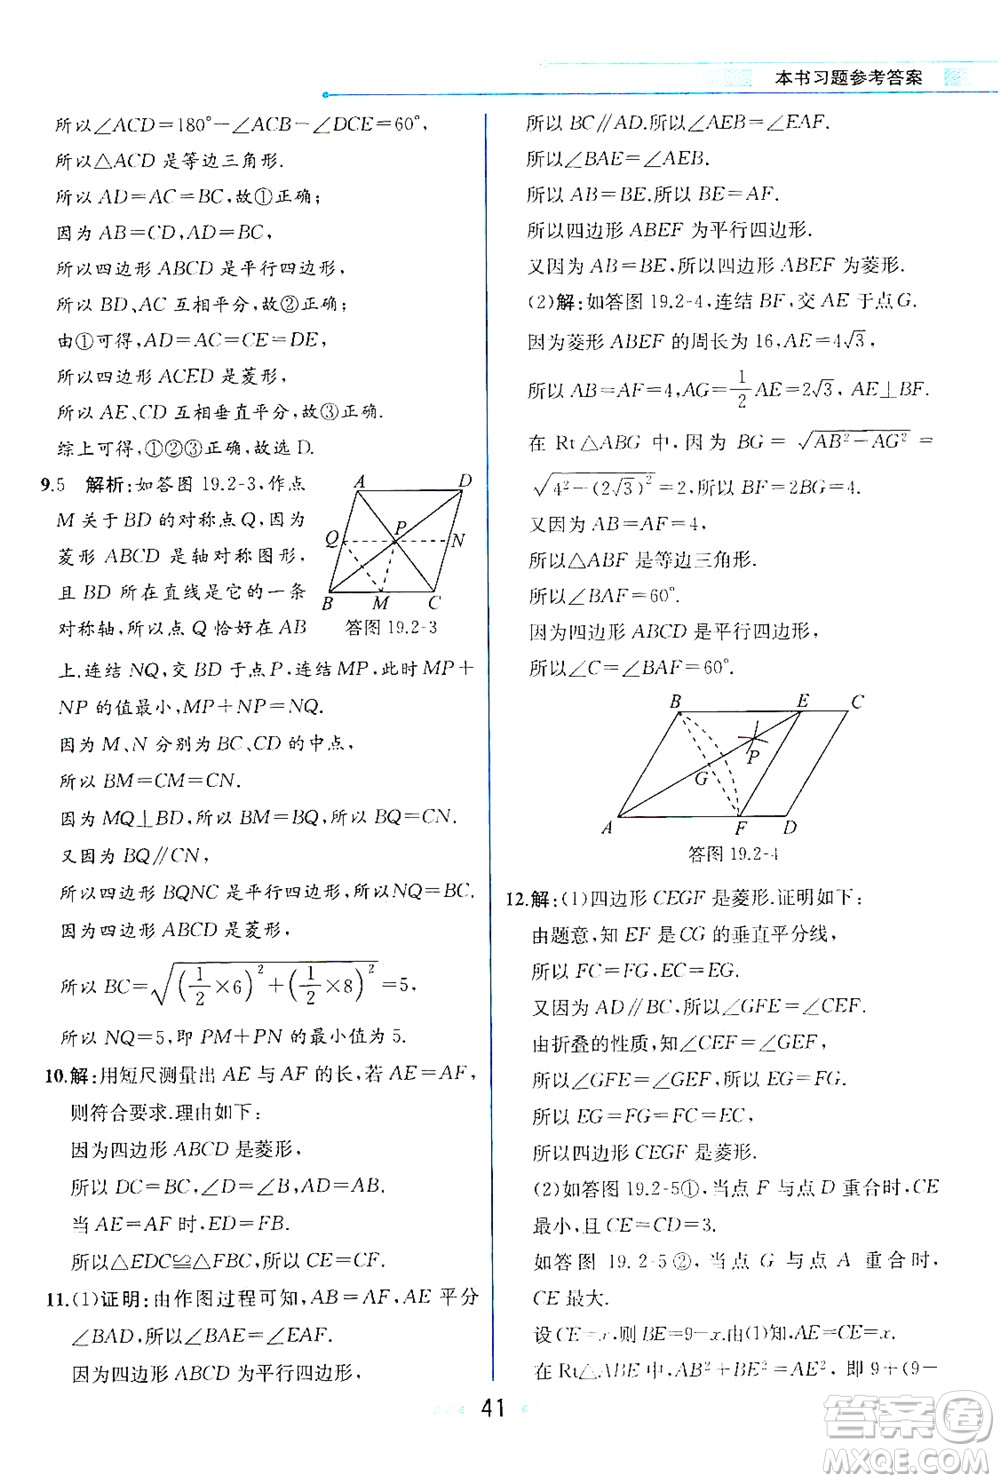 本书习题参考答案
所以∠ACD=180°-∠ACB-∠DCE=60°,
所以△ACD 是等边三角形.
所以 AD=AC=BC,故①正确;
因为 AB=CD,AD=BC,
所以四边形 ABCD 是平行四边形,
所以 BD、AC 互相平分,故②正确;
由①可得,AD=AC=CE=DE,
所以四边形 ACED 是菱形,
所以 AE、CD 互相垂直平分,故③正确.
综上可得,①②③正确,故选 D.
9.5 解析:如答图 19.2-3,作点
M 关于 BD 的对称点 Q,因为
菱形 ABCD 是轴对称图形,
且 BD 所在直线是它的一条
对称轴,所以点 Q 恰好在 AB
A D
Q P N
B M C
答图 19.2-3
上.连结 NQ,交 BD 于点 P,连结 MP,此时 MP+
NP 的值最小,MP+NP=NQ.
因为 M、N 分别为 BC、CD 的中点,
所以 BM=CM=CN.
因为 MQ⊥BD,所以 BM=BQ,所以 BQ=CN.
又因为 BQ∥CN,
所以四边形 BQNC 是平行四边形,所以 NQ=BC.
因为四边形 ABCD 是菱形,
所以 BC=√((1/2×6)²+(1/2×8)²)=5,
所以 NQ=5,即 PM+PN 的最小值为 5.
10.解:用短尺测量出 AE 与 AF 的长,若 AE=AF,
则符合要求.理由如下:
因为四边形 ABCD 是菱形,
所以 DC=BC,∠D=∠B,AD=AB.
当 AE=AF 时,ED=FB.
所以△EDC≌△FBC,所以 CE=CF.
11.(1)证明:由作图过程可知,AB=AF,AE 平分
∠BAD,所以∠BAE=∠EAF.
因为四边形 ABCD 为平行四边形,
所以 BC∥AD.所以∠AEB=∠EAF.
所以∠BAE=∠AEB.
所以 AB=BE.所以 BE=AF.
所以四边形 ABEF 为平行四边形.
又因为 AB=BE,所以四边形 ABEF 为菱形.
(2)解:如答图 19.2-4,连结 BF,交 AE 于点 G.
因为菱形 ABEF 的周长为 16,AE=4√3,
所以 AB=AF=4,AG=1/2AE=2√3,AE⊥BF.
在 Rt△ABG 中,因为 BG=√(AB²-AG²)=
√(4²-(2√3)²)=2,所以 BF=2BG=4.
又因为 AB=AF=4,
所以△ABF 是等边三角形.
所以∠BAF=60°.
因为四边形 ABCD 是平行四边形,
所以∠C=∠BAF=60°.
B E C
G P
A F D
答图 19.2-4
12.解:(1)四边形 CEGF 是菱形.证明如下:
由题意,知 EF 是 CG 的垂直平分线,
所以 FC=FG,EC=EG.
又因为 AD∥BC,所以∠GFE=∠CEF.
由折叠的性质,知∠CEF=∠GEF.
所以∠GFE=∠GEF,所以 EG=FG.
所以 EG=FG=FC=EC,
所以四边形 CEGF 是菱形.
(2)如答图 19.2-5①,当点 F 与点 D 重合时,CE
最小,且 CE=CD=3.
如答图 19.2-5②,当点 G 与点 A 重合时,
CE 最大.
设 CE=x,则 BE=9-x.由(1)知,AE=CE=x.
在 Rt△ABE 中,AB²+BE²=AE²,即 9+(9-
41
答案圈
MXQE.COM